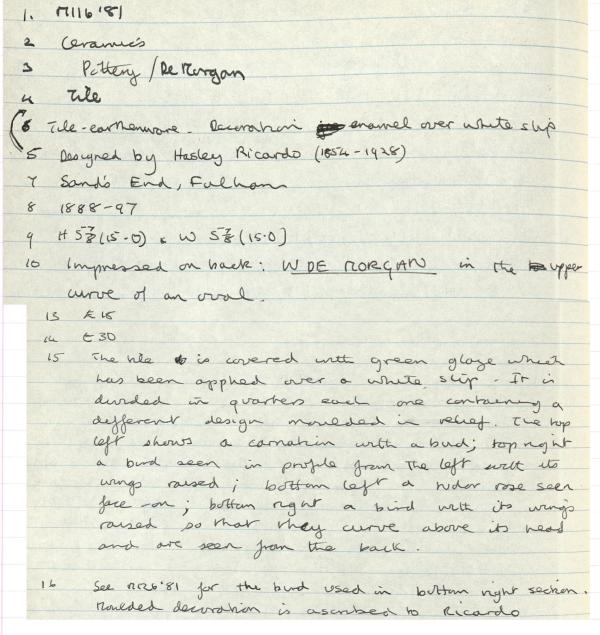 1. M116'81
2 Ceramics
3 Pottery / De Morgan
4 Tile
6 Tile-earthenware. Decoration enamel over white slip
5 Designed by Hasley Ricardo (1854-1928)
7 Sand's End, Fulham
8 1888-97
9 H 5 7/8 (15.0) W 5 7/8 (15.0)
10 Impressed on back: W DE MORGAN in the upper
curve of an oval.
13 £15
14 £30
15 The tile is covered with green glaze which
has been applied over a white slip. It is
divided in quarters each one containing a
different design moulded in relief. The top
left shows a carnation with a bud; top right
a bird seen in profile from the left with its
wings raised; bottom left a tudor rose seen
face-on; bottom right a bird with its wings
raised so that they curve above its head
and are seen from the back.
16 See for the bird used in bottom right section.
Moulded decoration is ascribed to Ricardo